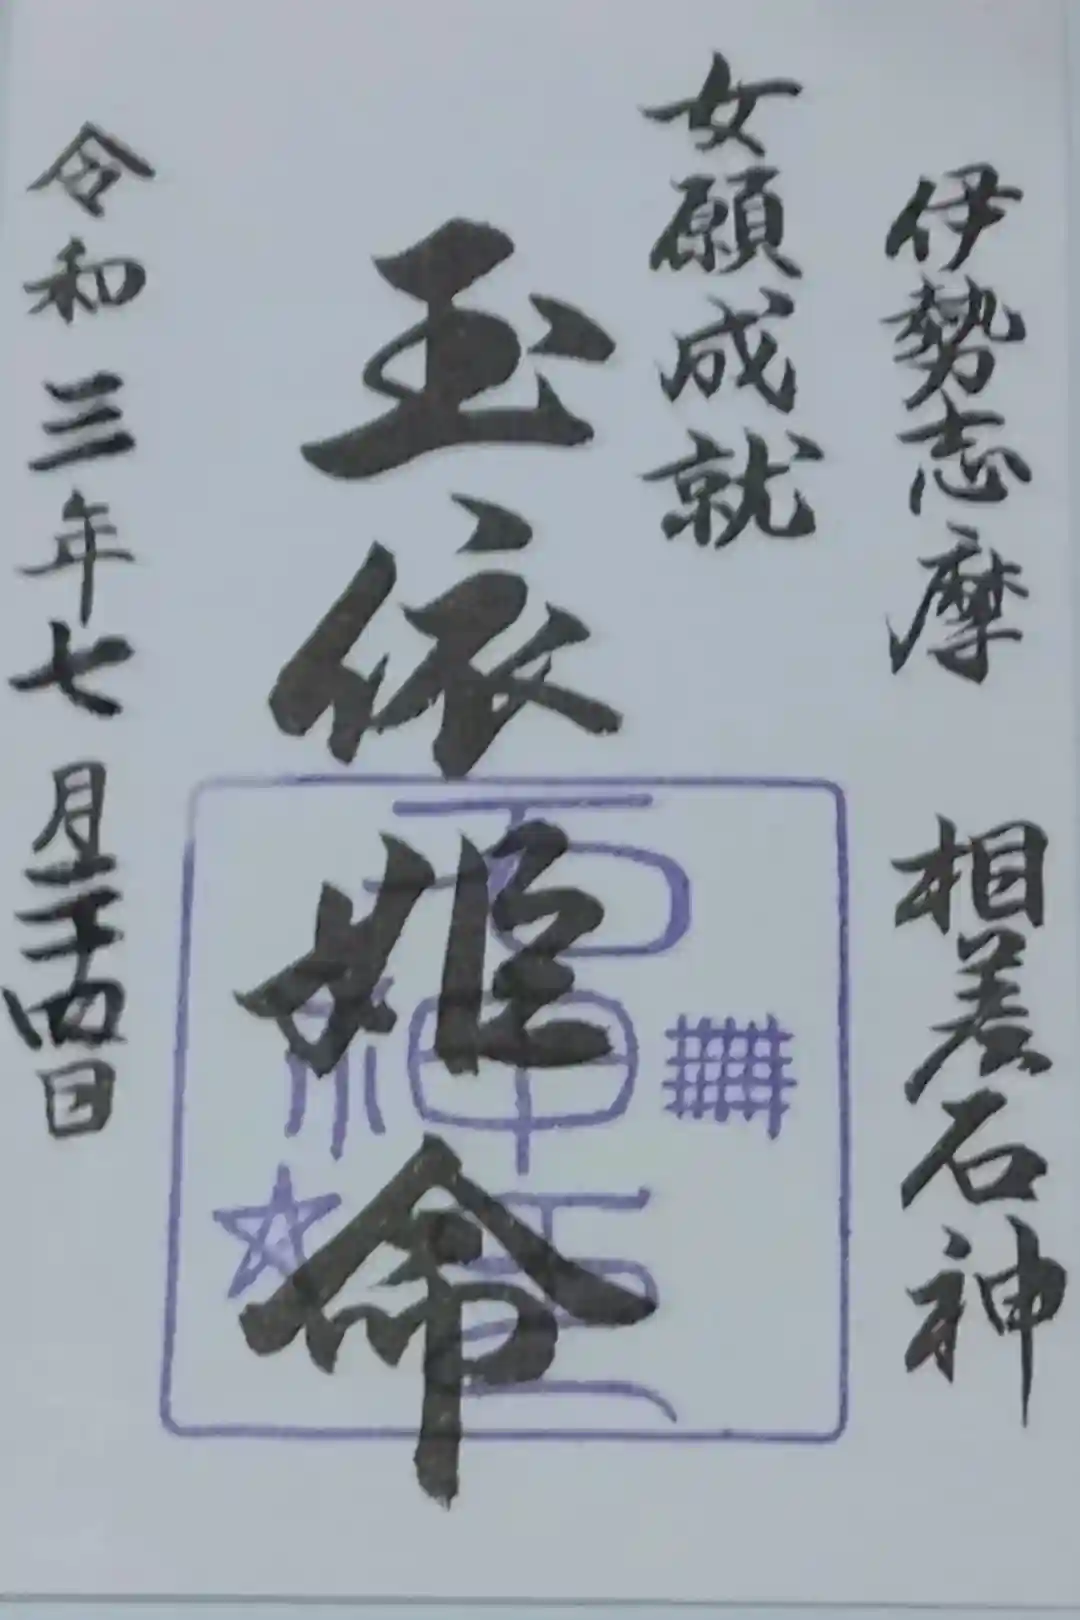 伊勢志摩 相差石神
女願成就
玉依姫命
石神
令和三年七月二十四日